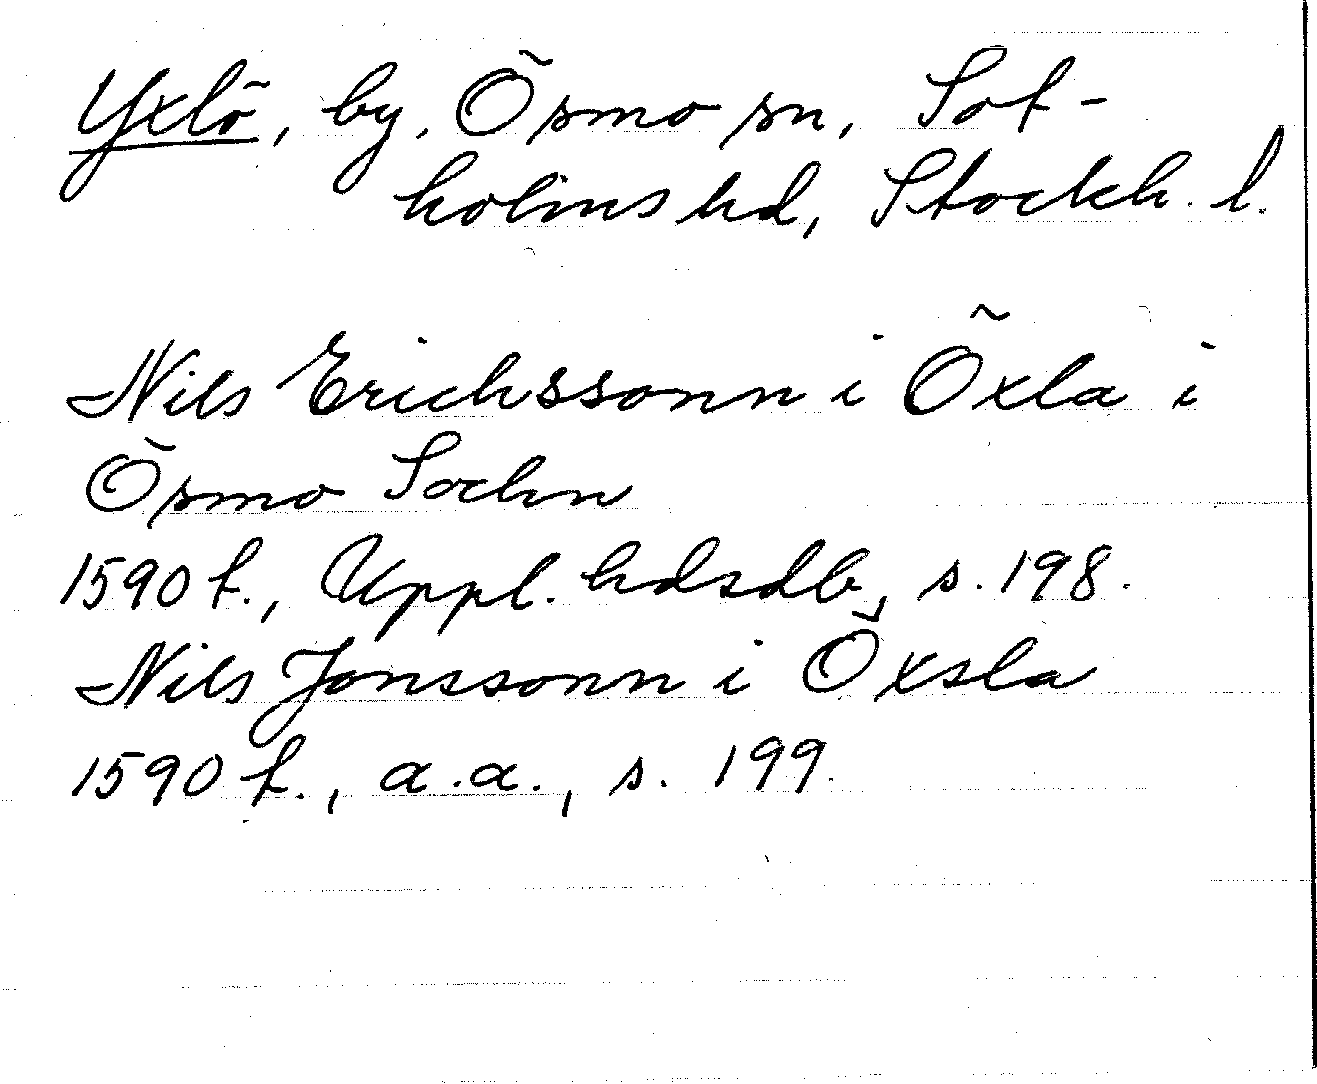 Yxlö, by, Ösmo sn, Sot-
holms hd, Stockh. l.
Nils Erichssonn i Öxla i
Ösmo Sochn
1590 t., Uppl. hdsdb, s. 198.
Nils Jonssonn i Öxsla
1590 t., a.a., s. 199.